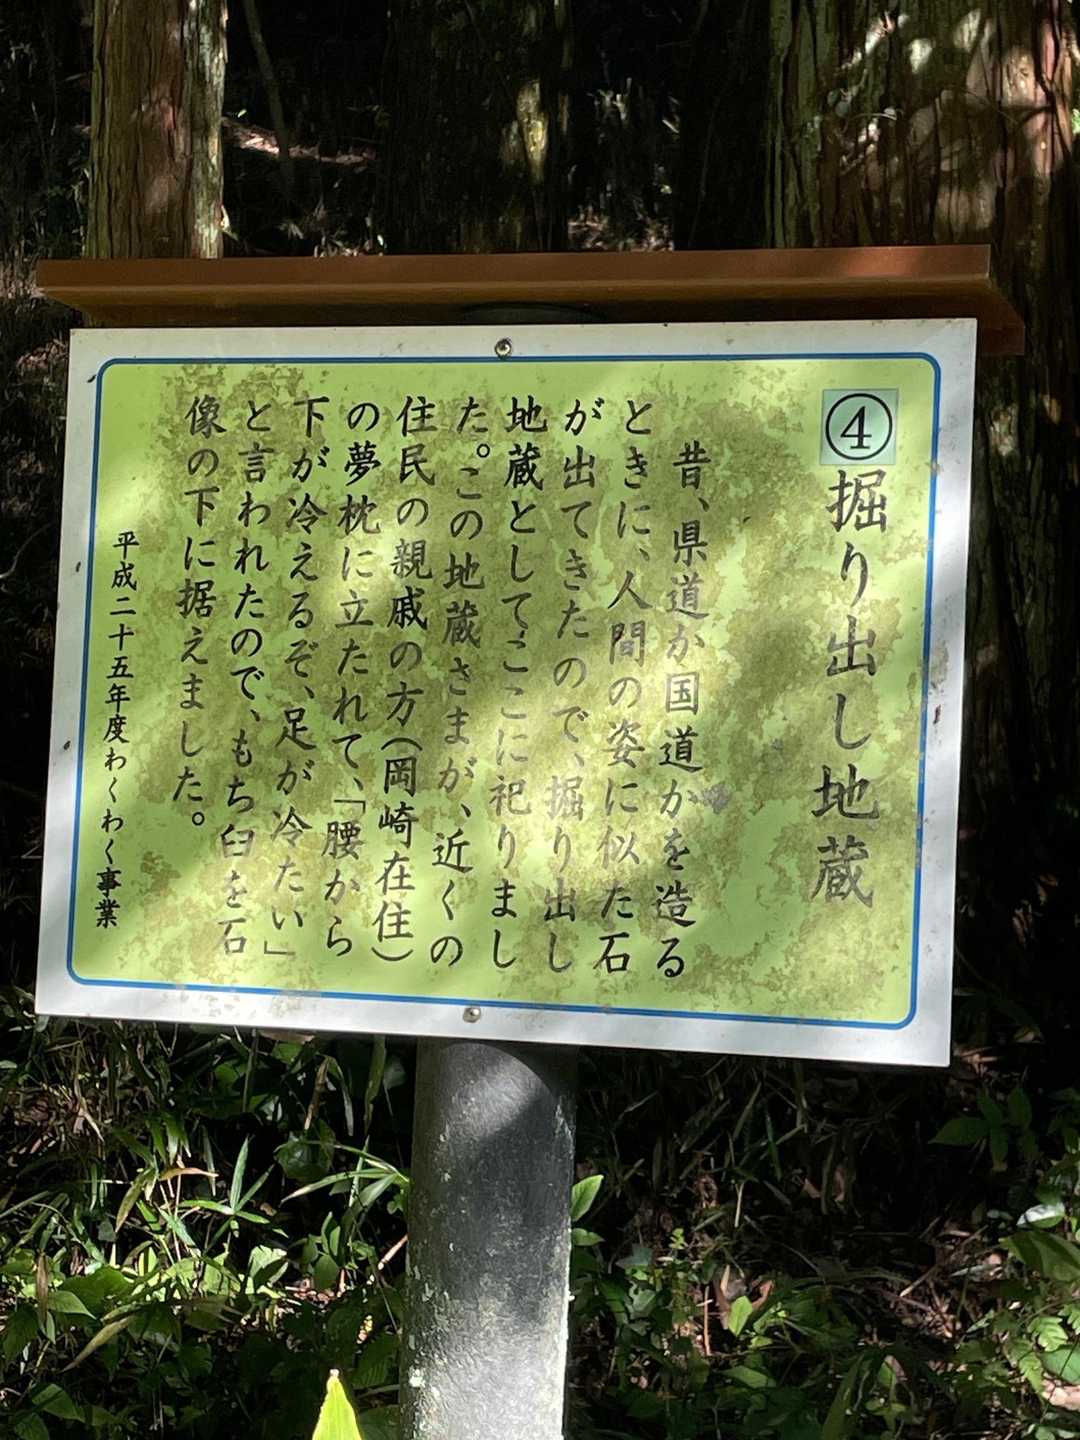 ④掘り出し地蔵
昔、県道か国道かを造る
ときに、人間の姿に似た石
が出てきたので、掘り出し
地蔵としてここに祀りまし
た。この地蔵さまが、近くの
住民の親戚の方(岡崎在住)
の夢枕に立たれて、「腰から
下が冷えるぞ、足が冷たい」
と言われたので、もち臼を石
像の下に据えました。
平成二十五年度わくわく事業